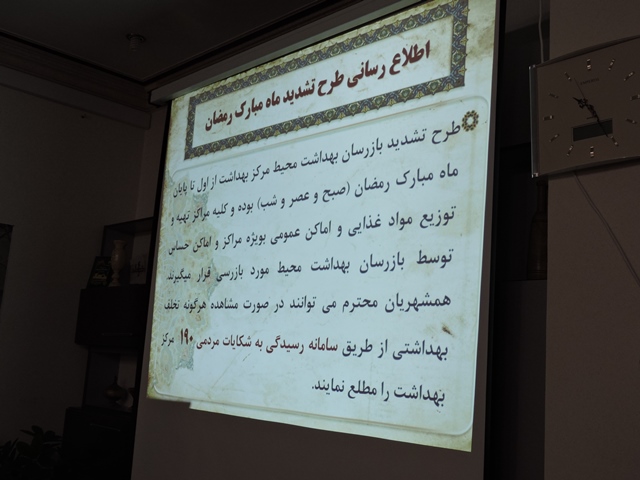 اطلاع رسانی طرح تشدید ماه مبارک رمضان
طرح تشدید بازرسان بهداشت محیط مرکز بهداشت از اول تا پایان
ماه مبارک رمضان (صبح و عصر و شب) بوده و کلیه مراکز تهیه و
توزیع مواد غذایی و اماکن عمومی بویژه مراکز و اماکن حساس
توسط بازرسان بهداشت محیط مورد بازرسی قرار میگیرند
همشهریان محترم می توانند در صورت مشاهده هرگونه تخلف
بهداشتی از طریق سامانه رسیدگی به شکایات مردمی ۱۹۰ مرکز
بهداشت را مطلع نمایند.